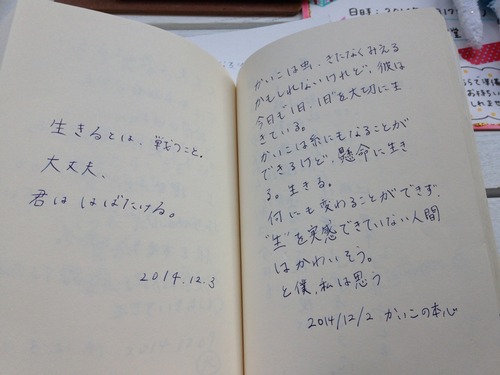 生きるとは、戦うこと。
大丈夫、
君は はばたける。
2014.12.3
かいこは虫、きたなくみえる
かもしれないけれど、彼は
今日も1日、1日を大切に生
きている。
かいこは糸にもなることが
できるけど、懸命に生き
る。生きる。
何にも変わることができず、
"生"を実感できていない人間
はかわいそう。
と僕、私は思う
2014/12/2 かいこの本心